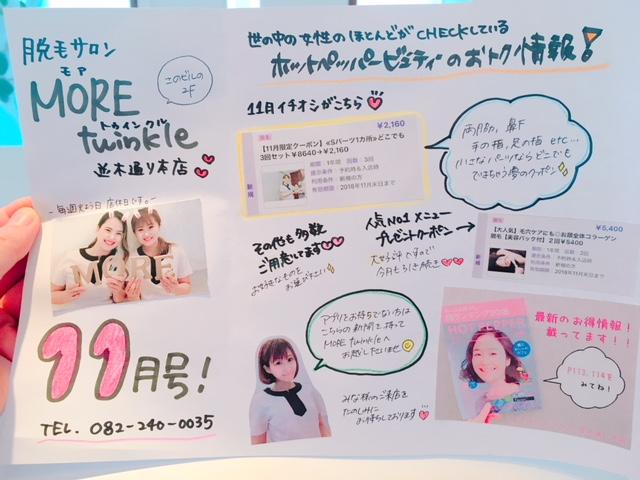 脱毛サロン
モア
MORE
トゥインクル
twinkle
並木通り本店
このビルの
2F
-毎週火よう日 店休日です。-
MORE
11月号!
TEL. 082-240-0035
世の中の女性のほとんどがCHECKしている
ホットペッパービューティーのおトク情報!
11月イチオシがこちら
¥2,160
【11月限定クーポン】≪Sパーツ1カ所≫どこでも
3回セット¥8640→¥2,160
新規
期間:1年間 回数:3回
提示条件:予約時&入店時
利用条件:新規の方
有効期限:2018年11月末日まで
両脇、鼻下
手の指、足の指 etc…
小さなパーツならどこでも
できちゃう夢のクーポン
その他も多数
ご用意してます
お好きなものを
お選び下さい
人気No1メニュー
プレゼントクーポン
大好評ですので
今月もひき続き
¥5,400
【大人気】毛穴ケアにも◎お顔全体コラーゲン
脱毛【美容パック付】2回¥5400
新規
2018年11月末日まで
アプリをお持ちでない方は
こちらの新聞を持って
MORE twinkleへ
お越しくださいませ
みな様のご来店を
たのしみに
お待ちしております
HOT PEPPER
最新のお得情報!
載ってます!!
P113,114を
みてね!